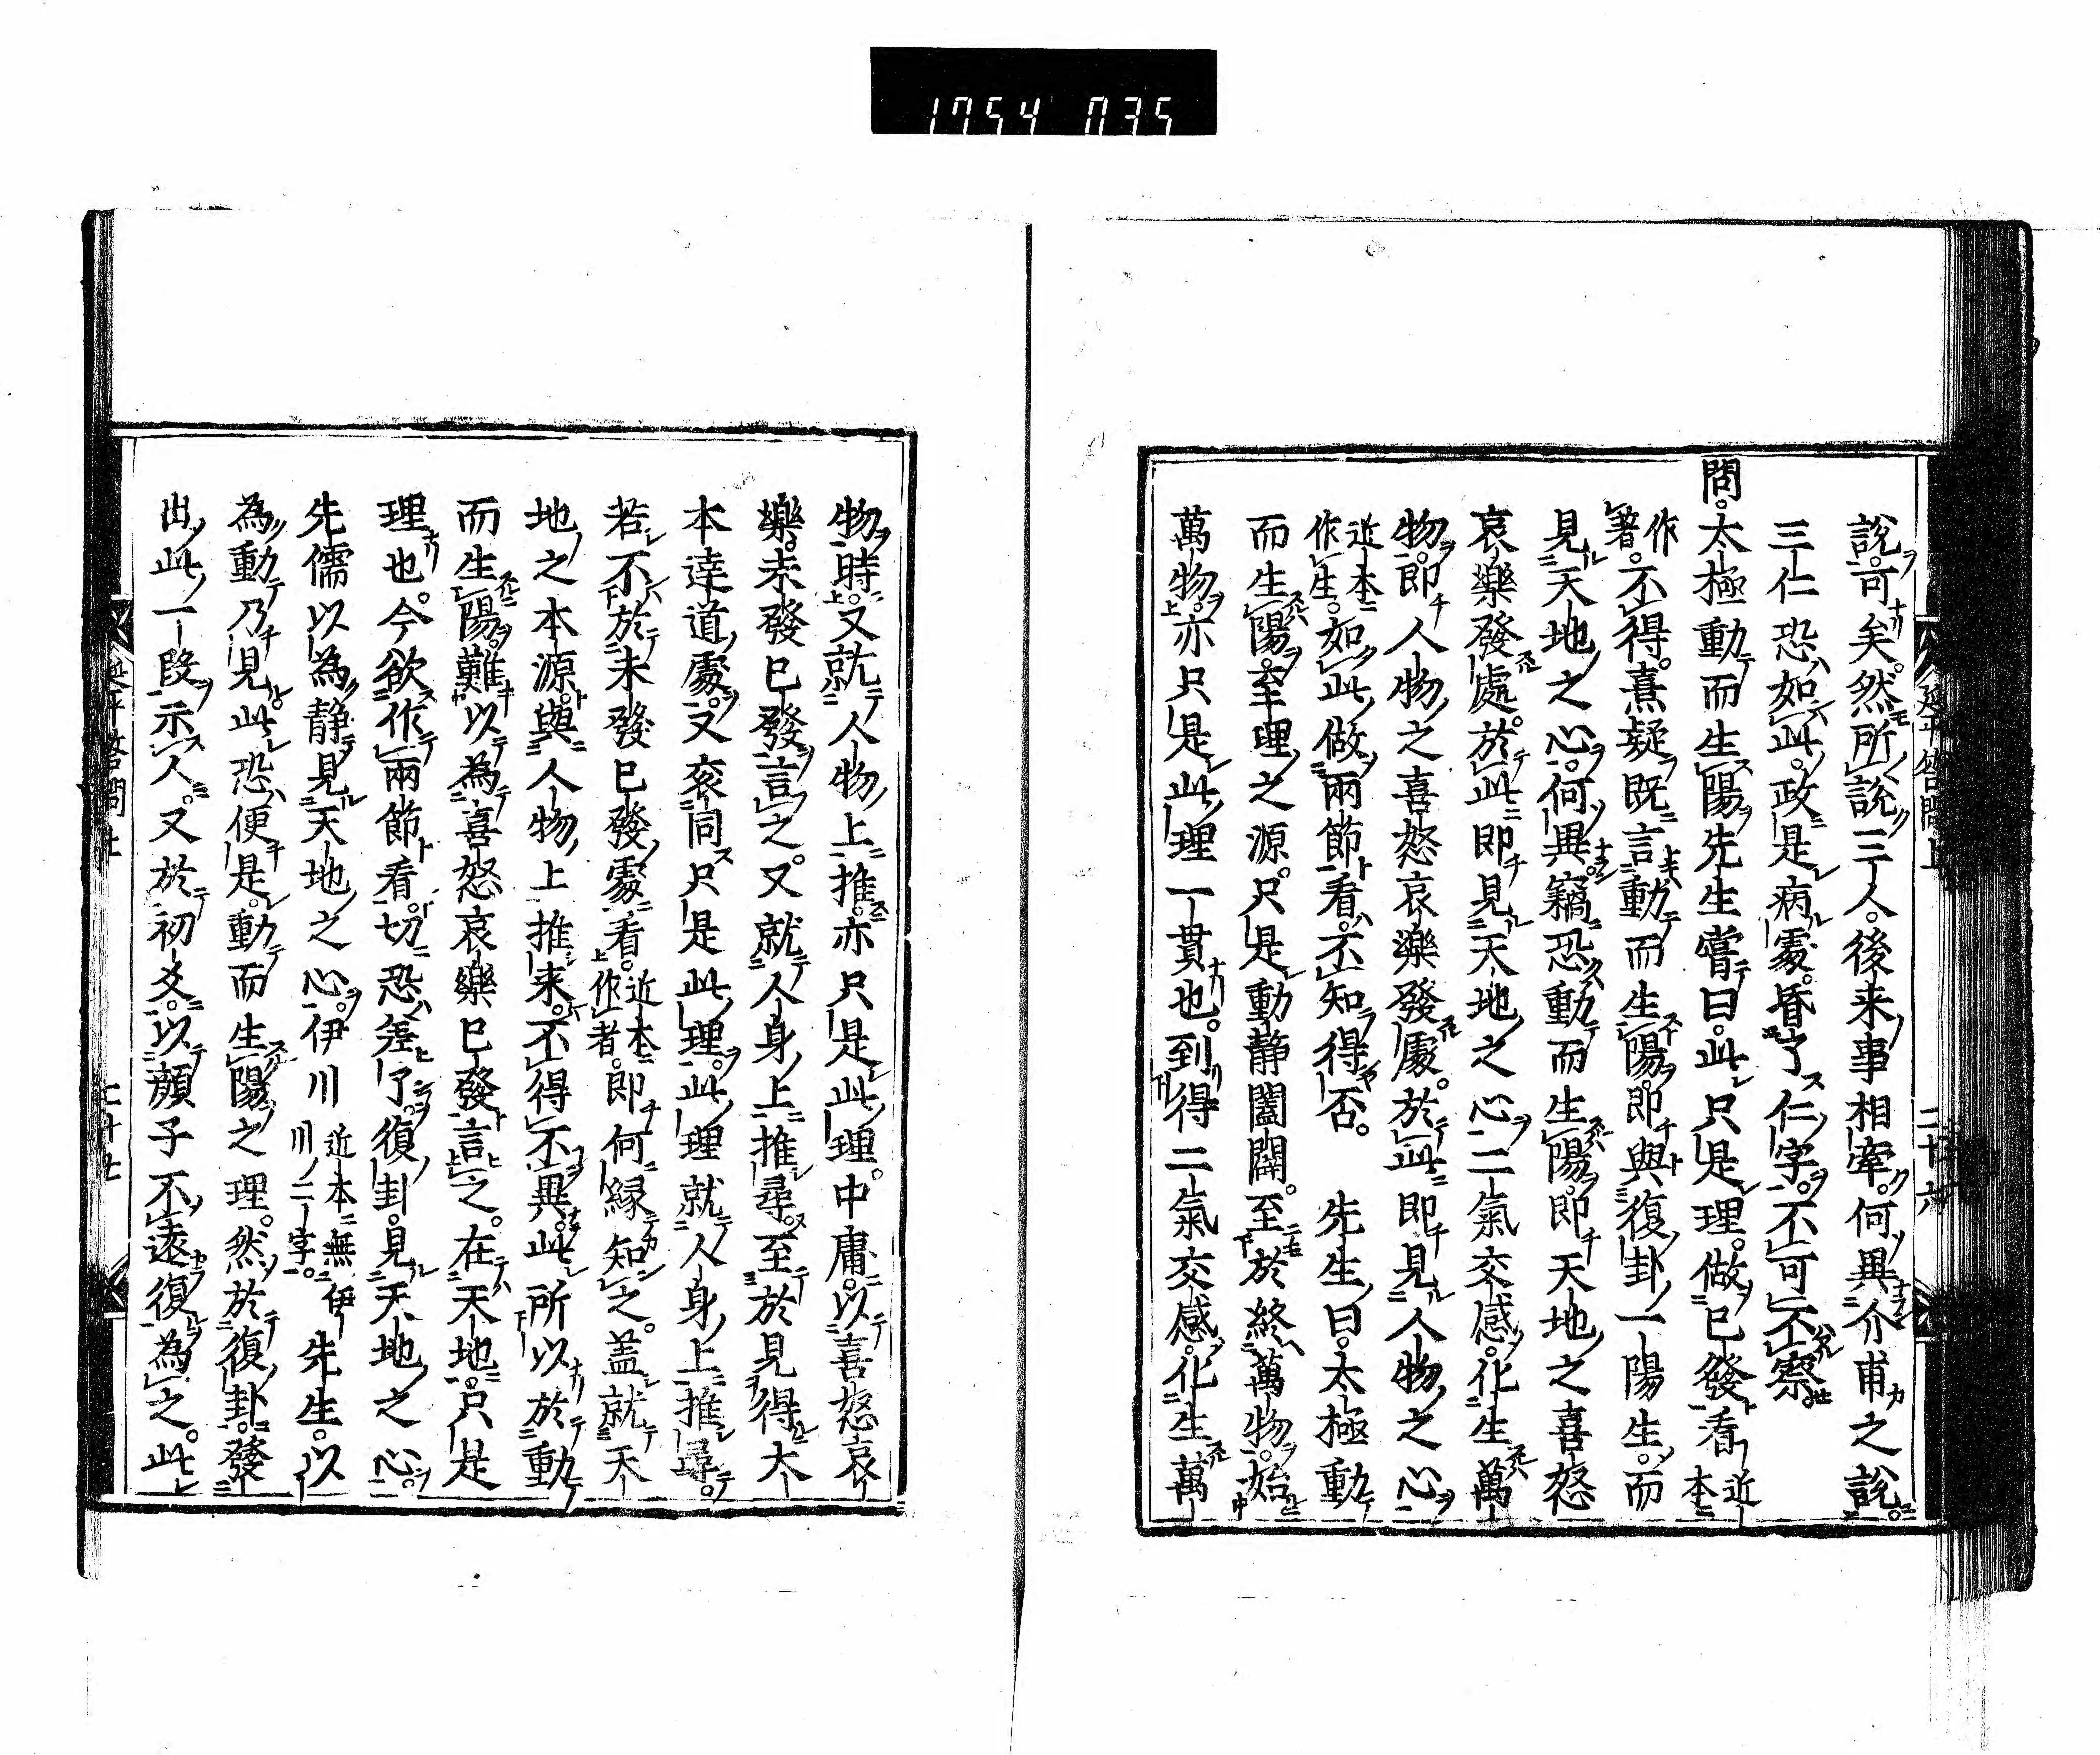 1754 035
延平答問上 二十六
說。可矣。然所說三人。後来事相牽。何異介甫之說。
三仁恐如此。政是病處。昏了仁字。不可不察。
問。太極動而生陽。先生嘗曰。此只是理。做已發看 近本
作著。不得。熹疑既言動而生陽。即與復卦一陽生。而
見天地之心。何異。竊恐動而生陽。即天地之喜怒
哀樂發處。於此即見天地之心。二氣交感。化生萬
物。即人物之喜怒哀樂發處。於此即見人物之心。
近本作生。如此做兩節看。不知得否。 先生曰。太極動
而生陽。至理之源。只是動静闔闢。至於終萬物。始
萬物。亦只是此理一貫也。到得二氣交感。化生萬
物時。又就人物上推。亦只是此理。中庸。以喜怒哀
樂。未發已發言之。又就人身上推尋。至於見得大
本達道處。又衮同只是此理。此理就人身上推尋。
若不於未發已發處看。近本作者。即何縁知之。盖就天
地之本源。與人物上推来。不得不異。此所以於動
而生陽。難以為喜怒哀樂已發言之。在天地。只是
理也。今欲作兩節看。切恐差了。復卦。見天地之心。
先儒以為静見天地之心。伊川 近本無伊川二字。 先生。以
為動乃見此恐便是。動而生陽之理。然於復卦。發
出此一段示人。又於初爻。以顔子不遠復為之。此
延平答問上 二十七